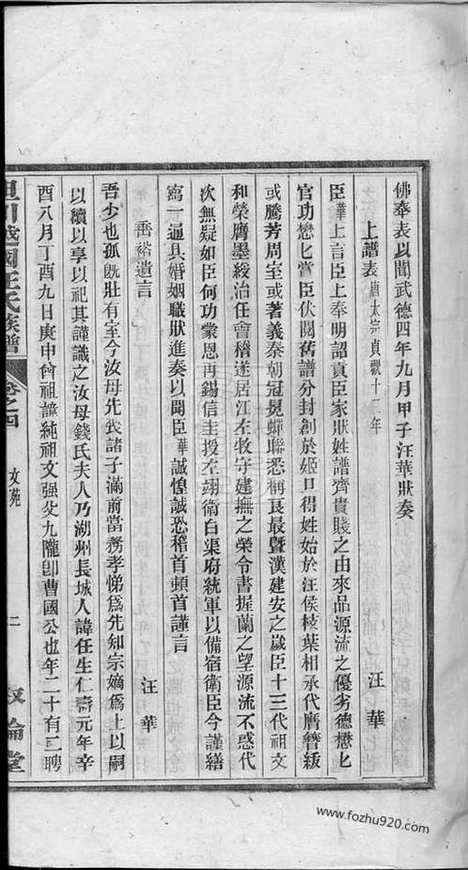 佛奉表以聞武德四年九月甲子汪華狀奏
上譜表 唐太宗貞觀十二年 汪華
臣華上言臣上奉明詔責臣家狀姓譜齊貴賤之由來品源流之優劣德懋匕
官功懋匕賞臣伏閱舊譜分封創於姬旦得姓始於汪侯枝葉相承代膺簪紱
或騰芳周室或著義秦朝冠冕蟬聯悉稱良最暨漢建安之歲臣十三代祖文
和榮膺墨綬治任會稽遂居江左牧守建撫之榮令書握蘭之望源流不惑代
次無疑如臣何功蒙恩再錫信圭授左翊衛白渠府統軍以備宿衛臣今謹繕
寫一通具婚姻職狀進奏以聞臣華誠惶誠恐稽首頓首謹言
垂裕遺言 汪華
吾少也孤旣壯有室今汝母先我諸子滿前當務孝悌爲先知宗嫡爲上以嗣
以續以享以祀其謹識之汝母錢氏夫人乃湖州長城人諱任生仁壽元年辛
酉八月丁酉九日庚申曾祖諱純祖文强父九隴卽曹國公也年二十有二聘
越國汪氏族譜
卷之四 文苑 二
敘倫堂
www.fozhu920.com